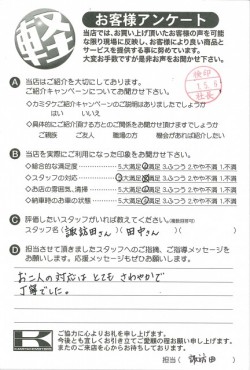 軽
お客様アンケート
当店では、お買い上げ頂いたお客様の声を可能
な限り現場に反映し、お客様により良い商品と
サービスを提供する事に努めています。
大変お手数ですが是非お声をお聞かせ下さい。
A 当店はご紹介を大切にしております。
ご紹介キャンペーンについてお聞かせ下さい。
◇カミタケご紹介キャンペーンのご説明はありましたでしょうか
はい いいえ
◇具体的にご紹介頂ける方とのご関係をお聞かせ頂けますでしょうか
ご親族 ご友人 職場の方 機会があれば紹介したい
B 当店を実際にご利用になった印象をお聞かせ下さい。
◇総合的な満足度 5.大満足 4.満足 3.ふつう 2.やや不満 1.不満
◇スタッフの対応 5.大満足 4.満足 3.ふつう 2.やや不満 1.不満
◇お店の雰囲気、清掃 5.大満足 4.満足 3.ふつう 2.やや不満 1.不満
◇納車時のお車の状態 5.大満足 4.満足 3.ふつう 2.やや不満 1.不満
C 評価したいスタッフがいれば教えてください。(複数回答可)
スタッフ名(諏訪田さん)(田中さん)
D 担当させて頂きましたスタッフへのご指摘、ご指導メッセージを
お願いします。応援メッセージもぜひお願いします。
お二人の対応はとてもさわやかで
丁寧でした。
K
ご協力に心よりお礼を申し上げます。
今後とも宜しくお引き立てご愛顧の程お願い申し上げます。
またのご来店を心からお待ちしております。
担当(諏訪田)